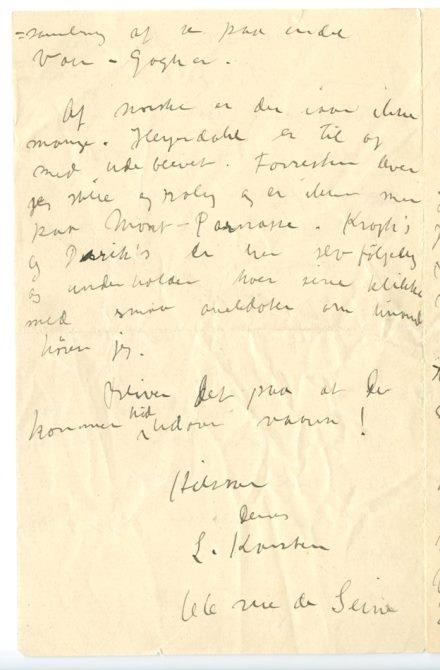 =samling af se paa endel
Van-Gogher.
Af norske er der iaar ikke
mange. Heyerdahl er til og
med udeblevet. Forresten lever
jeg stille og rolig og er ikke mer
paa Mont-Parnasse. Krogh's
og Dirik's er her selvfølgelig
og underholder hver sine klikke
med smaa anekdoter om
hører jeg.
Bliver det paa at De
kommer hid udover vaaren!
Hilsen
Deres
L. Karsten
66 rue de Seine